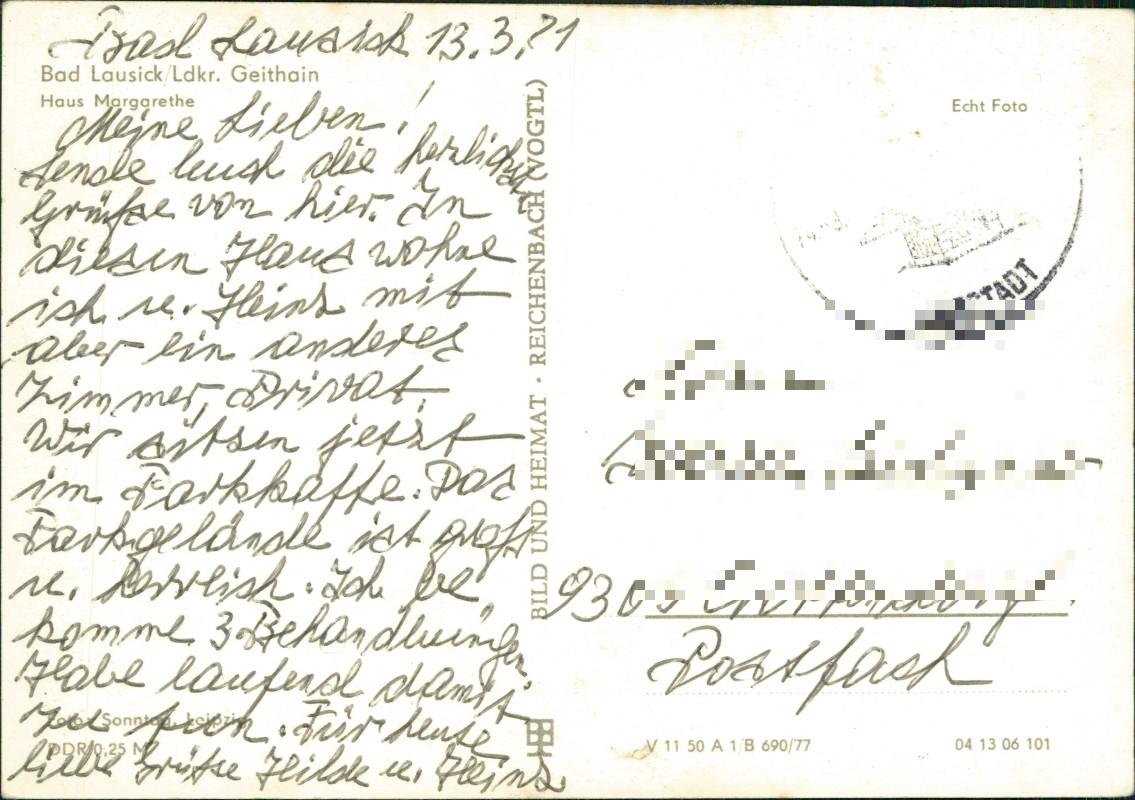 Bad Lausick 13.3.
Bad Lausick/Ldkr. Geithain
Haus Margarethe
Meine Lieben!
sende Euch die herzlichst
Grüße von hier. In
diesen Haus wohne
ich u. Heinz mit
aber ein anderes
Zimmer, Privat.
Wir sitsen jetzt
im Parkkaffe. Das
Parkgelände ist groß
u. herrlich. Ich be
komme 3 Behandlungen
Habe laufend damit
zu tun. Für heute
liebe Grüße Hilde u. Heinz
Foto: Sonntag, Leipzig
DDR 0,25 M
BILD UND HEIMAT · REICHENBACH (VOGTL)
Echt Foto
STADT
930
Postfach
V 11 50 A 1/B 690/77
04 13 06 101